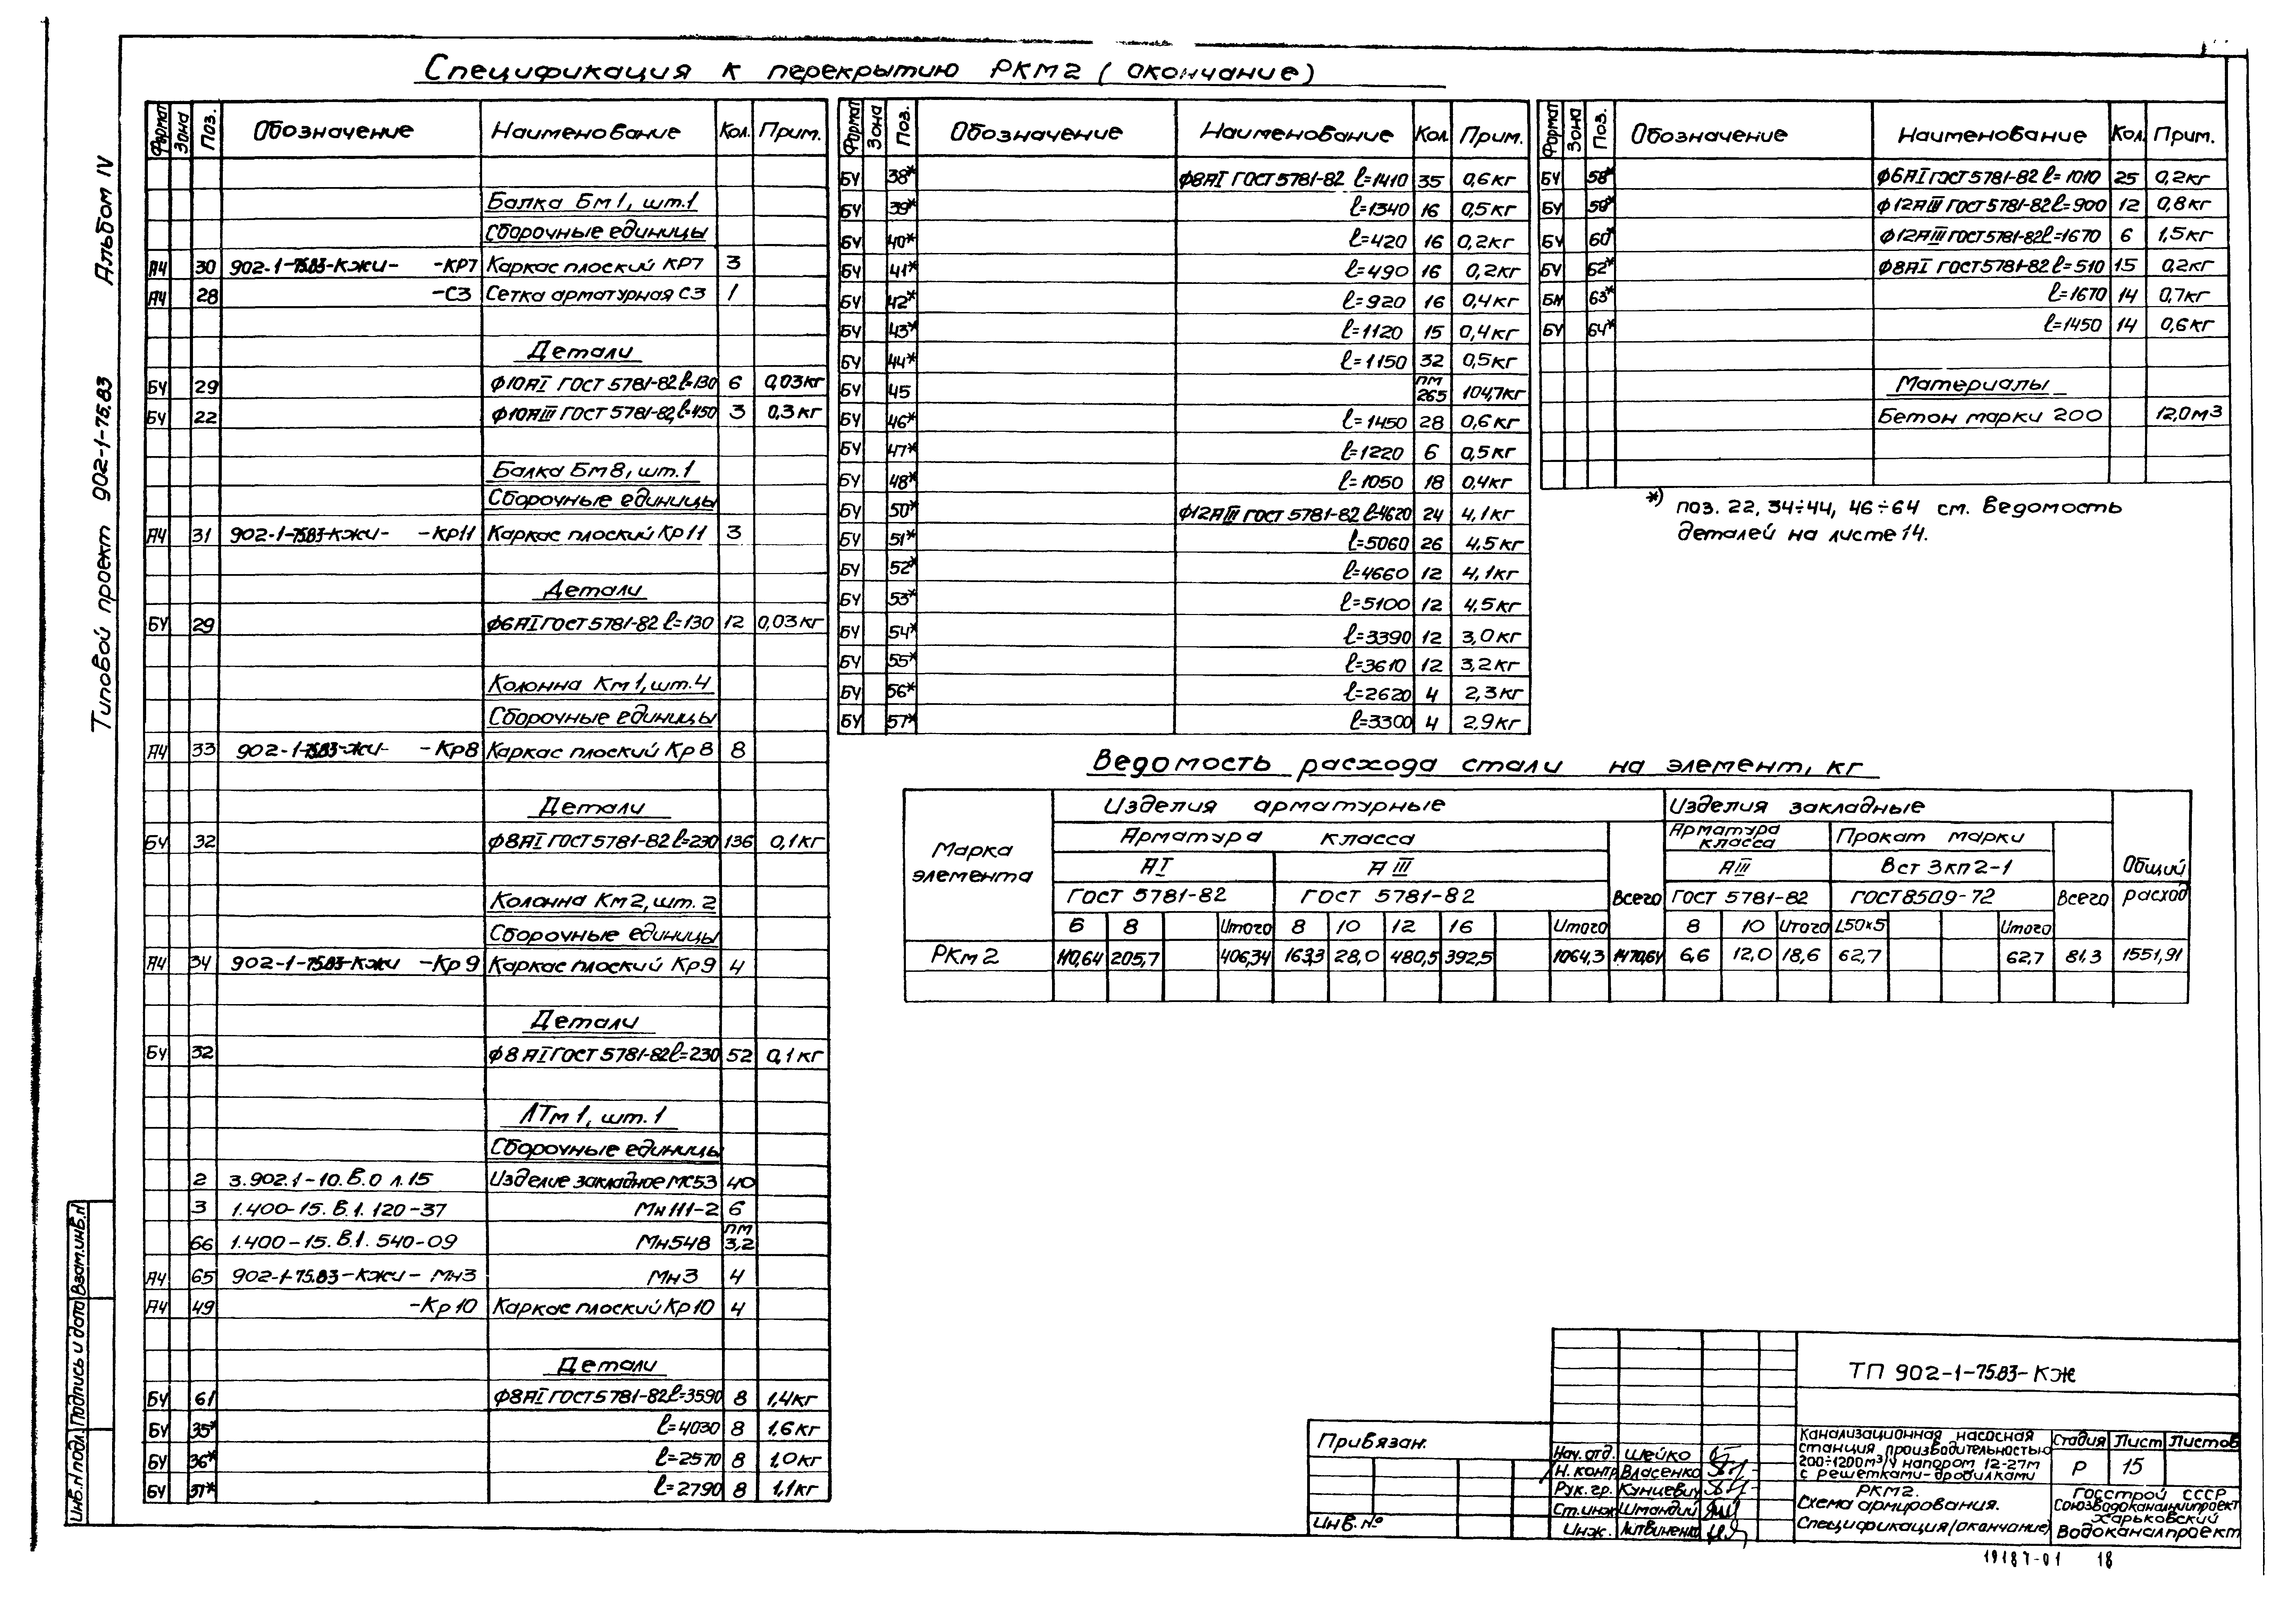 Спецификация к перекрытию РКМ2 (окончание)
Типовой проект 902-1-75.83 Альбом IV
Формат Зона Поз. Обозначение Наименование Кол. Прим.
Балка Бм1, шт.1
Сборочные единицы
А4 30 902-1-75.83-КЖИ- -КР7 Каркас плоский КР7 3
А4 28 -С3 Сетка арматурная С3 1
Детали
БЧ 29 ф10АI ГОСТ 5781-82 ℓ=130 6 0,03кг
БЧ 22 ф10АIII ГОСТ 5781-82, ℓ=450 3 0,3кг
Балка Бм8, шт.1
Сборочные единицы
А4 31 902-1-75.83-КЖИ- -Кр11 Каркас плоский Кр11 3
Детали
БЧ 29 ф6АI ГОСТ 5781-82 ℓ=130 12 0,03кг
Колонна Км1, шт.4
Сборочные единицы
А4 33 902-1-75.83-ЖИ- -Кр8 Каркас плоский Кр8 8
Детали
БЧ 32 ф8АI ГОСТ 5781-82 ℓ=230 136 0,1кг
Колонна Км2, шт. 2
Сборочные единицы
А4 34 902-1-75.83-КЖИ -Кр9 Каркас плоский Кр9 4
Детали
БЧ 32 ф8АI ГОСТ 5781-82 ℓ=230 52 0,1кг
ЛТм1, шт.1
Сборочные единицы
2 3.902.1-10.В.0 л.15 Изделие закладное МС53 40
3 1.400-15.В.1.120-37 Мн111-2 6
66 1.400-15.В.1.540-09 Мн548 пм 3,2
А4 65 902-1-75.83-КЖИ-Мн3 Мн3 4
А4 49 -Кр10 Каркас плоский Кр10 4
Детали
БЧ 61 ф8АI ГОСТ 5781-82 ℓ=3590 8 1,4кг
БЧ 35* ℓ=4030 8 1,6кг
БЧ 36* ℓ=2570 8 1,0кг
БЧ 37* ℓ=2790 8 1,1кг
Формат Зона Поз. Обозначение Наименование Кол. Прим.
БЧ 38* ф8АI ГОСТ 5781-82 ℓ=1410 35 0,6кг
БЧ 39* ℓ=1340 16 0,5кг
БЧ 40* ℓ=420 16 0,2кг
БЧ 41* ℓ=490 16 0,2кг
БЧ 42* ℓ=920 16 0,4кг
БЧ 43* ℓ=1120 15 0,4кг
БЧ 44* ℓ=1150 32 0,5кг
БЧ 45 пм 265 104,7кг
БЧ 46* ℓ=1450 28 0,6кг
БЧ 47* ℓ=1220 6 0,5кг
БЧ 48* ℓ=1050 18 0,4кг
БЧ 50* ф12АIII ГОСТ 5781-82 ℓ=4620 24 4,1кг
БЧ 51* ℓ=5060 26 4,5кг
БЧ 52* ℓ=4660 12 4,1кг
БЧ 53* ℓ=5100 12 4,5кг
БЧ 54* ℓ=3390 12 3,0кг
БЧ 55* ℓ=3610 12 3,2кг
БЧ 56* ℓ=2620 4 2,3кг
БЧ 57* ℓ=3300 4 2,9кг
Формат Зона Поз. Обозначение Наименование Кол. Прим.
БЧ 58* ф6АI ГОСТ 5781-82 ℓ=1010 25 0,2кг
БЧ 59* ф12АIII ГОСТ 5781-82 ℓ=900 12 0,8кг
БЧ 60* ф12АIII ГОСТ 5781-82 ℓ=1670 6 1,5кг
БЧ 62* ф8АI ГОСТ 5781-82 ℓ=510 15 0,2кг
БЧ 63* ℓ=1670 14 0,7кг
БЧ 64* ℓ=1450 14 0,6кг
Материалы
Бетон марки 200 12,0м3
*) поз. 22, 34÷44, 46÷64 см. Ведомость
деталей на листе 14.
Ведомость расхода стали на элемент, кг
Марка элемента Изделия арматурные Изделия закладные Общий расход
Арматура класса Всего Арматура класса Прокат марки Всего
АI АIII АIII Вст 3кп2-1
ГОСТ 5781-82 ГОСТ 5781-82 ГОСТ 5781-82 ГОСТ 8509-72
6 8 Итого 8 10 12 16 Итого 8 10 Итого L50х5 Итого
РКм2 205,7 406,34 163,3 28,0 480,5 392,5 1064,3 1470,64 6,6 12,0 18,6 62,7 62,7 81,3 1551,91
ТП 902-1-75.83-КЖ
Канализационная насосная
станция производительностью
200÷1200м³/ч напором 12-27м
с решетками-дробилками
Стадия Лист Листов
Р 15
РКМ2.
Схема армирования.
Спецификация (окончание)
Госстрой СССР
Союзводоканалниипроект
Харьковский
Водоканалпроект
Нач. отд. Шейко
Н. контр. Власенко
Рук. гр. Кунцевич
Ст. инж. Шмандий
Инж. Литвиненко
Привязан.
Инв. №
Инв. N подл. Подпись и дата Взам. инв. N
19187-01 18